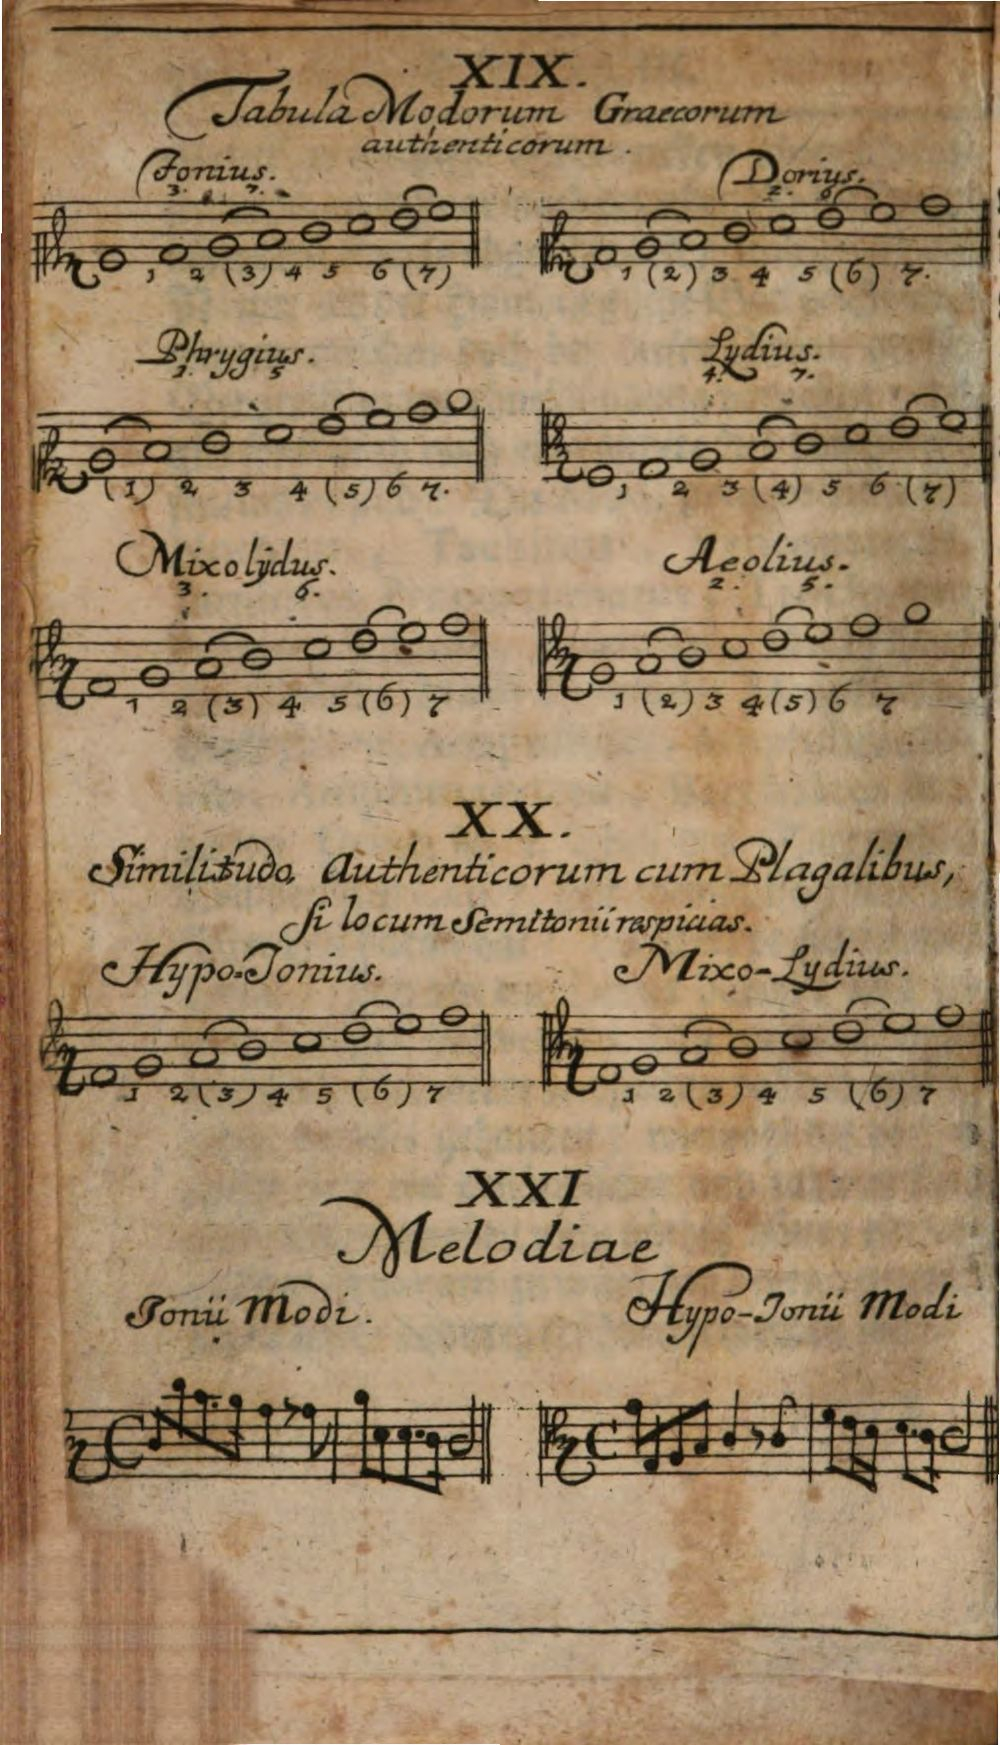 XIX.
Tabula Modorum Graecorum
authenticorum.
Jonius.
3. 7.
1 2 (3) 4 5 6 (7)
Dorius.
2. 6
1 (2) 3 4 5 (6) 7.
Phrygius.
1. 5
(1) 2 3 4 (5) 6 7.
Lydius.
4. 7.
1 2 3 (4) 5 6 (7)
Mixolÿdus.
3. 6.
1 2 (3) 4 5 (6) 7
Aeolius.
2. 5.
1 (2) 3 4 (5) 6 7
XX.
Similitudo Authenticorum cum Plagalibus,
si locum Semitonii respicias.
Hypo-Jonius.
1 2 (3) 4 5 (6) 7
Mixo-Lydius.
1 2 (3) 4 5 (6) 7
XXI
Melodiae
Jonii Modi.
Hypo-Jonii Modi